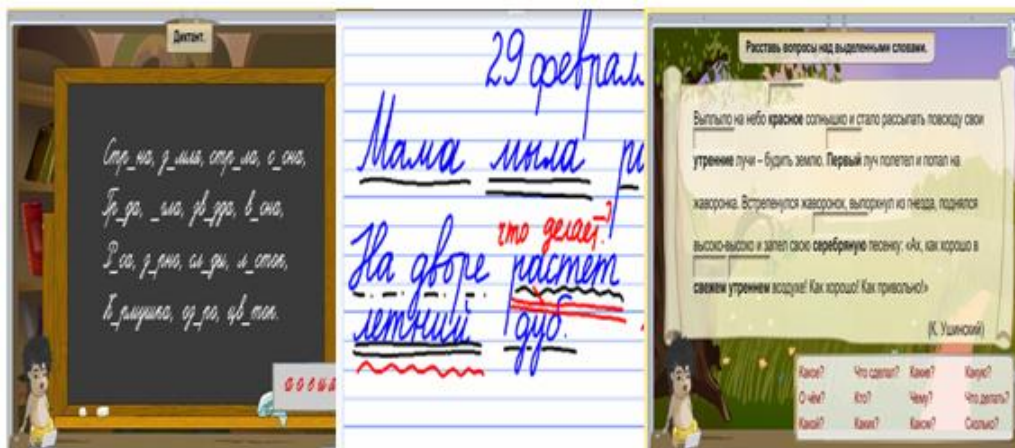 Диктант.
Стр_на, з_мля, стр_ла, с_сна,
Гр_да, _гла, зв_зда, в_сна,
Р_са, з_рно, сл_ды, л_сток,
К_рмушка, яд_ро, цв_ток.
29 феврал
Мама мыла р
что делает?
На дворе растёт
летний дуб.
Расставь вопросы над выделенными словами.
Выплыло на небо красное солнышко и стало рассыпать повсюду свои
утренние лучи – будить землю. Первый луч полетел и попал на
жаворонка. Встрепенулся жаворонок, выпорхнул из гнезда, поднялся
высоко-высоко и запел свою серебряную песенку: «Ах, как хорошо в
свежем утреннем воздухе! Как хорошо! Как привольно!»
(К. Ушинский)
Какое? Что сделал? Какие? Какую?
О чём? Кто? Чему? Что делать?
Какой? Каких? Каком? Сколько?